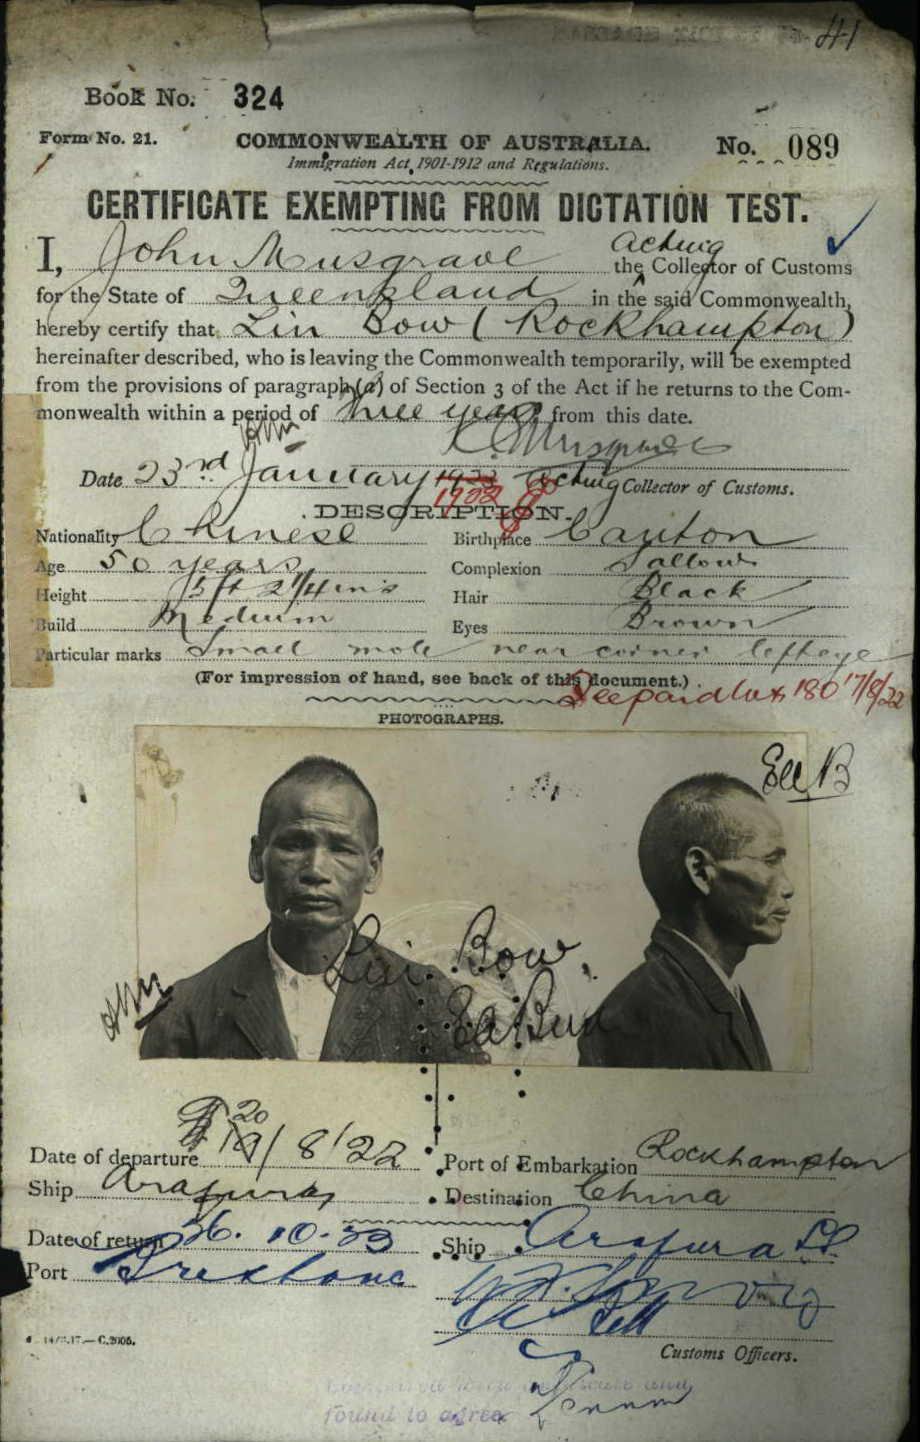 41
Book No. 324
Form No. 21. COMMONWEALTH OF AUSTRALIA. No. 089
Immigration Act 1901-1912 and Regulations.
CERTIFICATE EXEMPTING FROM DICTATION TEST.
I, John Musgrave acting the Collector of Customs
for the State of Queensland in the said Commonwealth,
hereby certify that Lin Bow (Rockhampton)
hereinafter described, who is leaving the Commonwealth temporarily, will be exempted
from the provisions of paragraph (a) of Section 3 of the Act if he returns to the Com-
monwealth within a period of three years from this date.
Date 23rd January 1922 acting Collector of Customs.
DESCRIPTION.
Nationality Chinese Birthplace Canton
Age 50 years Complexion Sallow
Height 5 ft 2 1/4 ins Hair Black
Build Medium Eyes Brown
Particular marks Small mole near corner left eye
(For impression of hand, see back of this document.)
180 17/8/22
PHOTOGRAPHS.
Lin Bow
Date of departure 20/8/22 Port of Embarkation Rockhampton
Ship Arafura Destination China
Date of return 26.10.23 Ship Arafura
Port Brisbane
C.2005.
Customs Officers.
found to agree